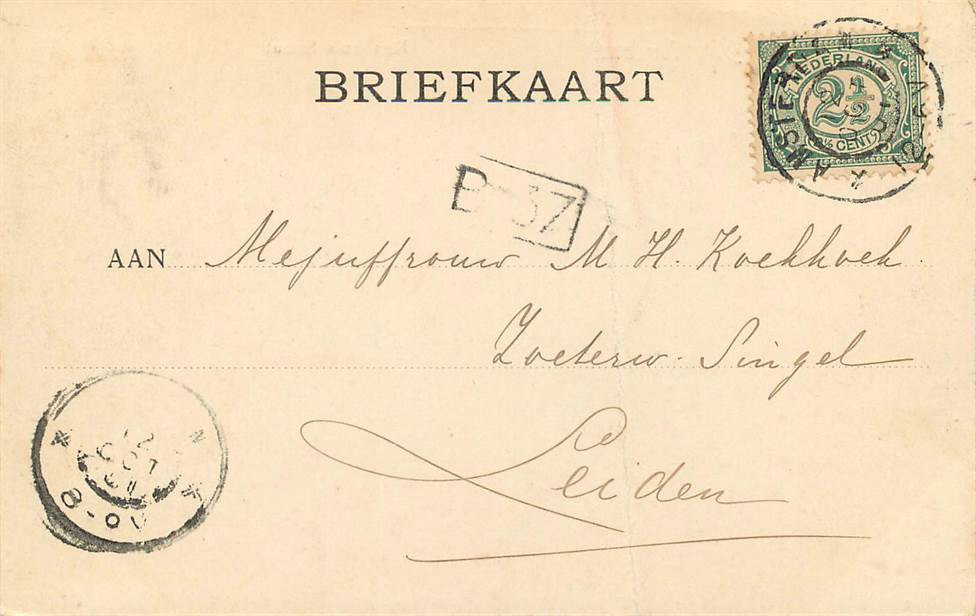 BRIEFKAART
NEDERLAND
2½
2½ CENT
AMSTERD
AAN Mejuffrouw M H. Koekkoek.
Zoeterw. Singel
Leiden
12
OCT
01